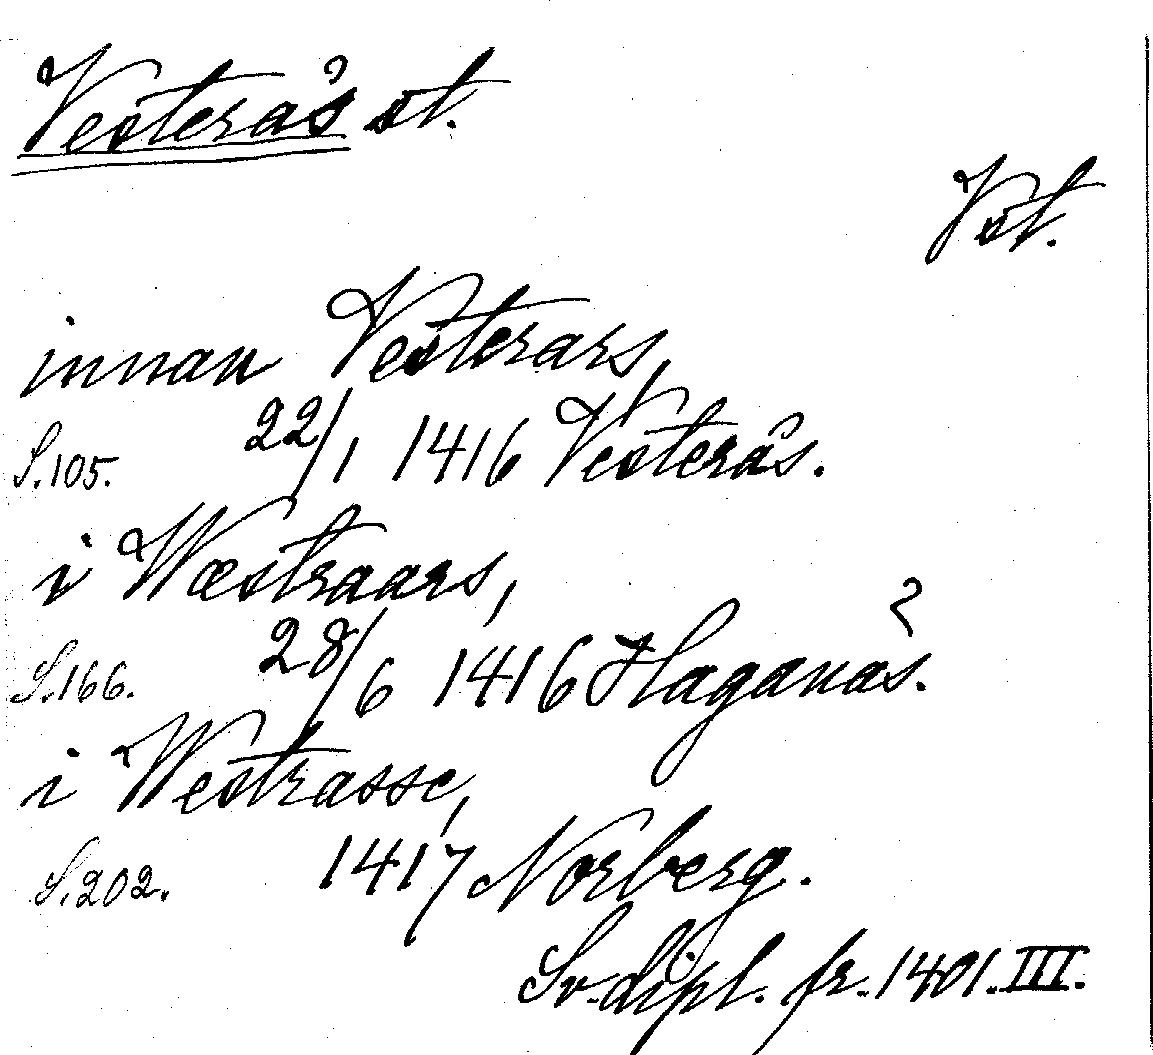 Vesterås st.
Vst.
innan Vesterars,
S.105. 22/1 1416 Vesterås.
i Wæstraars,
S.166. 28/6 1416 Haganäs. ?
i Westrasse,
S.202. 1417 Norberg.
Sv. dipl. fr. 1401. III.